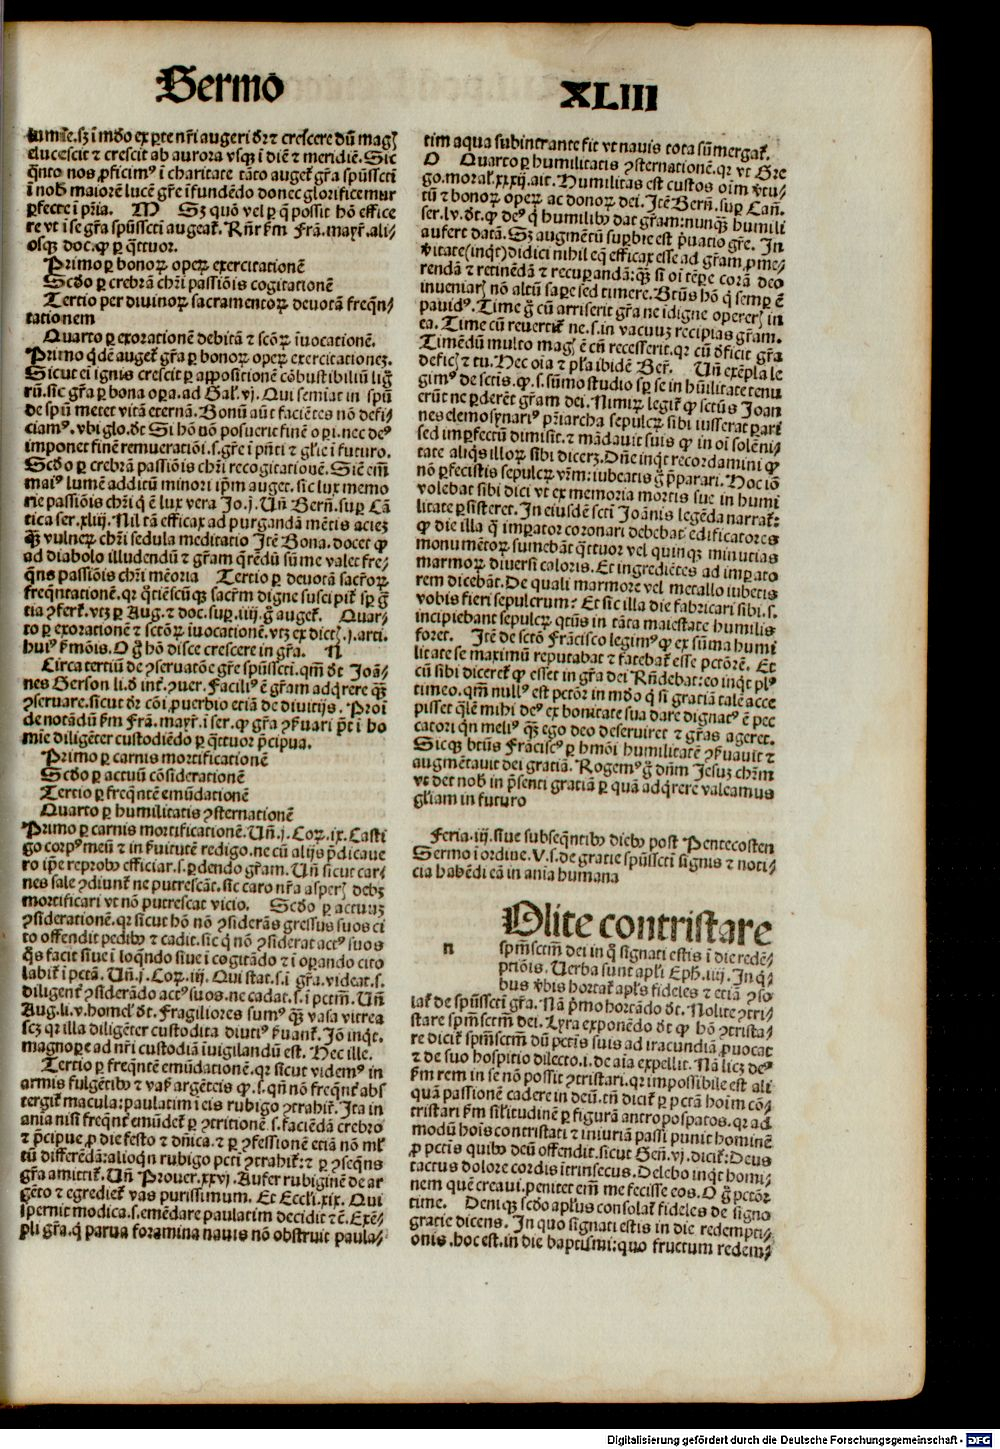 Sermo XLIII
lumĩe.sꝫ ĩ mō ex ꝑte nr̃i augeri dr̃ ⁊ crescere dũ mag
elucescit ⁊ crescit ab aurora vsqꝫ ĩ diẽ ⁊ meridiẽ. Sic
q̃nto nos ꝓficim⁹ ĩ charitate tãto auget gr̃a spũssctĩ
ĩ nob maiorẽ lucẽ gr̃e ĩfundẽdo donec glorificemur
ꝑfecte ĩ pr̃ia. M Sꝫ quõ vel ꝑ q̃ possit hõ effice
re vt ĩ se gr̃a spũsscti augeat. Rñr ẜm Frã.mayr̃.ali⸗
osqꝫ doc.ꝙ ꝑ q̃ttuor.
Primo ꝑ bonoꝝ opeꝝ exercitationẽ
Scd̃o ꝑ crebrã chr̃i passiõis cogitationẽ
Tertio per diuinoꝝ sacramentoꝝ deuotã freq̃n⸗
tationem
Quarto ꝑ exorationẽ debitã ⁊ scõꝝ ĩuocationẽ.
Primo q̃dẽ auget gr̃a ꝑ bonoꝝ opeꝝ exercitationeꝫ.
Sicut eĩ ignis crescit ꝑ apꝓpositionẽ cõbustibiliũ lig
rũ.sic gr̃a ꝑ bona oꝑa.ad Gal.vj. Qui semĩat in spũ
de spũ metet vitã eternã. Bonũ aũt faciẽtes nõ defi⸗
ciam⁹. vbi glo.dt Si hõ nõ posuerit finẽ oꝑi.nec de⁹
imponet finẽ remueratiõi.s.gr̃e ĩ pñti ⁊ gl̃ie ĩ futuro.
Scd̃o ꝑ crebrã passiõis chr̃i recogitationẽ. Sic eĩm
mai⁹ lumẽ additũ minori ip̃m auget. sic lux memo
rie passiõis chr̃i q̃ ẽ lux vera Jo.j. Uñ Bern̄.suꝑ Cã
tica ser.xliij. Nil tã efficax ad purgandã mẽtis acieꝫ
q̃ꝫ vulneꝝ chr̃i sedula meditatio Jtẽ Bona.docet ꝙ
ad diabolo illudendũ ⁊ gr̃am q̃rẽdũ sũme valet fre⸗
q̃ns passiõis chr̃i mẽoria Tertio ꝑ deuotã sacr̃oꝝ
freq̃ntationẽ.qr q̃tiẽscũqꝫ sacr̃m digne suscipit sp g̃
tia ꝯfert. vtꝫ ꝑ Aug.⁊ doc.suꝑ.iiij.g̃ auget. Quar⸗
to ꝑ exorationẽ ⁊ sctõꝝ ĩuocationẽ.vtꝫ ex dict.j.arti.
hui⁹ ẜmõis. O g̃ hõ disce crescere in gr̃a. N
Circa tertiũ de ꝯseruatõe gr̃e spũsscti.qm̃ dt Joã⸗
nes Gerson li.d int.ꝯuer. Facili⁹ ẽ gr̃am adq̃rere q̃ꝫ
ꝯseruare.sicut dr̃ cõi ꝓuerbio etiã de diuitijs. Proi
de notãdũ ẜm Frã.mayr̃.ĩ ser.ꝙ gr̃a ꝯẜuari põt ĩ ho
mie diligẽter custodiẽdo ꝑ q̃ttuor pͥcipua.
Primo ꝑ carnis mortificationẽ
Scd̃o ꝑ actuũ cõsiderationẽ
Tertio ꝑ freq̃ntẽ emũdationẽ
Quarto ꝑ humilitatis ꝯsternationẽ
Primo ꝑ carnis mortificationẽ.Uñ.j.Coꝝ.ix.Casti
go corp⁹ meũ ⁊ in ẜuitutẽ redigo.ne cũ alijs p̃dicaue
ro ip̃e reprob⁹ efficiar.s.ꝑdendo gr̃am. Uñ sicut car⸗
nes sale ꝯdiunt ne putrescãt.sic caro nr̃a asper debꝫ
mortificari vt nõ putrescat vicio. Scd̃o ꝑ actuuꝫ
ꝯsiderationẽ.qr sicut hõ nõ ꝯsiderãs gressus suos ci
to offendit pedibꝰ ⁊ cadit.sic q̃ nõ ꝯsiderat act⁹ suos
q̃s facit siue ĩ loq̃ndo siue ĩ cogitãdo ⁊ ĩ oꝑando cito
labit ĩ pctã. Uñ.j.Coꝝ.iij. Qui stat.s.ĩ gr̃a.videat.s.
diligent ꝯsiderãdo act⁹ suos.ne cadat.s.ĩ pctm̃. Uñ
Aug.li.v.homel dt. Fragiliores sum⁹ q̃ꝫ vasa vitrea
scꝫ qr illa diligẽter custodita diuti⁹ ẜuant. Jõ inqt.
magnopere ad nr̃i custodiã ĩuigilandũ est. Hec ille.
Tertio ꝑ freq̃ntẽ emũdationẽ.qr sicut videm⁹ in
armis fulgẽtibꝰ ⁊ vas argẽteis ꝙ.s.qñ nõ freq̃nt abs
tergit macula:paulatim ĩ eis rubigo ꝯtrahit. Jta in
anĩa nisi freq̃nt emũdet ꝑ ꝯtritionẽ.s.faciẽdã crebro
⁊ p̃cipue ꝓ die festo ⁊ dñica.⁊ ꝑ ꝯfessionẽ etiã nõ ml
tũ differẽdã:alioqn rubigo pcti ꝯtrahit:⁊ ꝑ ꝯseq̃ns
gr̃a amittit. Uñ Prouer.xxvj. Aufer rubiginẽ de ar
gẽto ⁊ egrediet vas purissimum. Et Eccli.xix. Qui
spernit modica.s.emẽdare paulatim decidit ⁊ẽ. Exẽ⸗
pli gr̃a.q̃ parua foramina nauis nõ obstruit paula⸗
tim aqua subintrante fit vt nauis tota sũmergat.
O Quarto ꝑ humilitatis ꝯsternationẽ.qr vt Gre
go.moral.xxxij.ait. Humilitas est custos oĩm v̓tu⸗
tũ ⁊ bonoꝝ opeꝝ ac donoꝝ dei. Jtẽ Bern̄.suꝑ Can̄.
ser.lv.dt.ꝙ de⁹ q̃ humilibꝰ dat gr̃am:nunqꝫ humili
aufert datã. Sꝫ augmẽtũ suꝑbie est p̃uatio gr̃e. In
v̓itate(inqt)didici nihil eq̃ efficax esse ad gr̃am ꝓme⸗
rendã ⁊ retinẽdã ⁊ recuꝑandã:q̃ꝫ si oĩ tẽꝑe corã deo
inueniar nõ altũ saꝑe sed timere. Btũs hõ q̃ semꝑ ẽ
pauid⁹. Time g̃ cũ arriserit gr̃a ne ĩdigne opereris in
ea. Time cũ reuertit ne.s.in vacuuꝫ recipias gr̃am.
Timẽdũ multo mag ẽ cũ recesserit.qr cũ dficit gr̃a
defic ⁊ tu. Hec oĩa ⁊ pla ibidẽ Ber̃. Uñ exẽpla le
gim⁹ de sctis.ꝙ.s.sũmo studio sp se in hũilitate tenu
erũt ne ꝑderẽt gr̃am dei. Nimiꝝ legit ꝙ sctũs Joan
nes elemosynari⁹ pr̃iarcha sepulcꝝ sibi iusserat pari
sed imꝑfectũ dimisit.⁊ mãdauit suis ꝙ in oĩ solẽni⸗
tate aliq̃s illoꝝ sibi dicerꝫ. Dñe inqt recordamini ꝙ
nõ ꝑfecistis sepulcꝝ vr̃m:iubeatis g̃ p̃parari. Hoc iõ
volebat sibi dici vt ex memoria mortis sue in humi
litate ꝑsisteret. In eiusdẽ scti Joãnis legẽda narrat:
ꝙ die illa q̃ imꝑator coronari debebat edificatores
monumẽtoꝝ sumebãt q̃ttuor vel quinqꝫ minutias
marmoꝝ diuersi coloris. Et ingrediẽtes ad imꝑato
rem dicebãt. De quali marmore vel metallo iubetis
vobis fieri sepulcrum? Et sic illa die fabricari sibi.s.
incipiebant sepulcꝝ qtũs in tãta maiestate humilis
foret. Jtẽ de sctõ Frãcisco legim⁹ ꝙ ex sũma humi
litate se maximũ reputabat ⁊ fatebat esse pctõrẽ. Et
cũ sibi diceret ꝙ esset in gr̃a dei Rñdebat:eo inqt pl⁹
timeo.qm̃ null⁹ est pctõr in mũdo q̃ si gratiã talẽ acce
pisset q̃lẽ mihi de⁹ ex bonitate sua dare dignat⁹ ẽ pec
catori qn meli⁹ q̃ꝫ ego deo deseruiret ⁊ gr̃as ageret.
Sicqꝫ btũs Frãcisc⁹ ꝑ hmõi humilitatẽ ꝯẜuauit ⁊
augmẽtauit dei gratiã. Rogem⁹ g̃ dñm Jesuꝫ chr̃m
vt det nob in p̃senti gratiã ꝑ quã adq̃rere valeamus
gl̃iam in futuro
Feria.iij.siue subseq̃ntibꝰ diebꝰ post Pentecosten
Sermo ĩ ordine.V.s.de gratie spũsscti signis ⁊ noti⸗
cia habẽdi eã in anĩa humana
n Olite contristare
spm̃sctm̃ dei in q̃ signati estis ĩ die redẽ⸗
ptiõis. Uerba sunt apl̃i Eph.iiij. In q̃⸗
bus v̓bis hortat apl̃s fideles ⁊ etiã ꝯso
lat de spũsscti gr̃a. Nã pͥmo hortãdo dt. Nolite ꝯtri⸗
stare spm̃sctm̃ dei. Lyra exponẽdo dt ꝙ hõ ꝯtrista⸗
re dicit spm̃sctm̃ dũ pctis suis ad iracundiã ꝓuocat
⁊ de suo hospitio dilecto.i.de aĩa expellit. Nã licꝫ de⁹
ẜm rem in se nõ possit ꝯtristari.qr impossibile est ali
quã passionẽ cadere in deũ.tñ dicit ꝑ pctã hoĩm cõ⸗
tristari ẜm sil̃itudinẽ ꝑ figurã antropospatos.qr ad
modũ hoĩs contristati ⁊ iniuriã passi punit hominẽ
ꝓ pctis quibꝰ deũ offendit.sicut Gen̄.vj.dicit: Deus
tactus dolore cordis ĩtrinsecus. Delebo inqt homi⸗
nem quẽ creaui.penitet em̃ me fecisse eos. O g̃ pctõr
time. Deniqꝫ scd̃o apl̃us consolat fideles de signo
gratie dicens. In quo signati estis in die redempti⸗
onis.hoc est.in die baptismi:quo fructum redem⸗
Digitalisierung gefördert durch die Deutsche Forschungsgemeinschaft - DFG